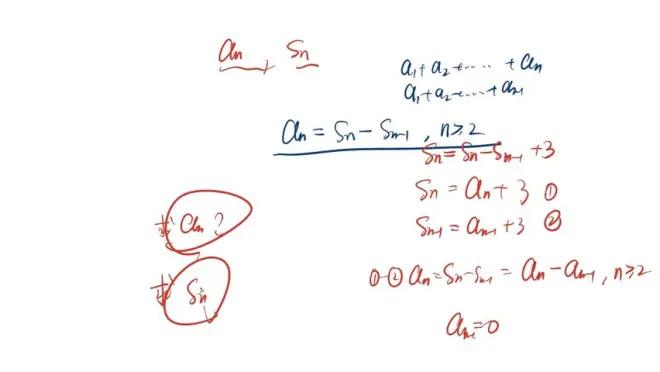 an , Sn
a₁+a₂+……+an
a₁+a₂+……+aₙ₋₁
an=Sn-Sₙ₋₁ , n≥2
Sn=Sn-Sₙ₋₁+3
Sn=an+3 ①
Sₙ₋₁=aₙ₋₁+3 ②
求 an?
①-② an=Sn-Sₙ₋₁=an-aₙ₋₁, n≥2
求 Sn
aₙ₋₁=0